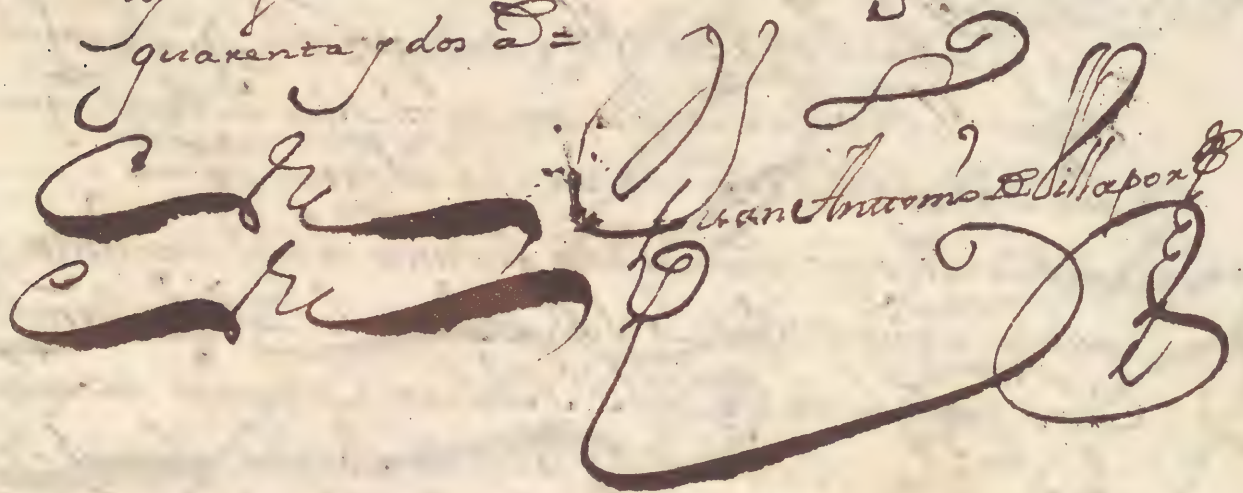 quarenta y dos a.s =
Juan Anttonio de Villaport